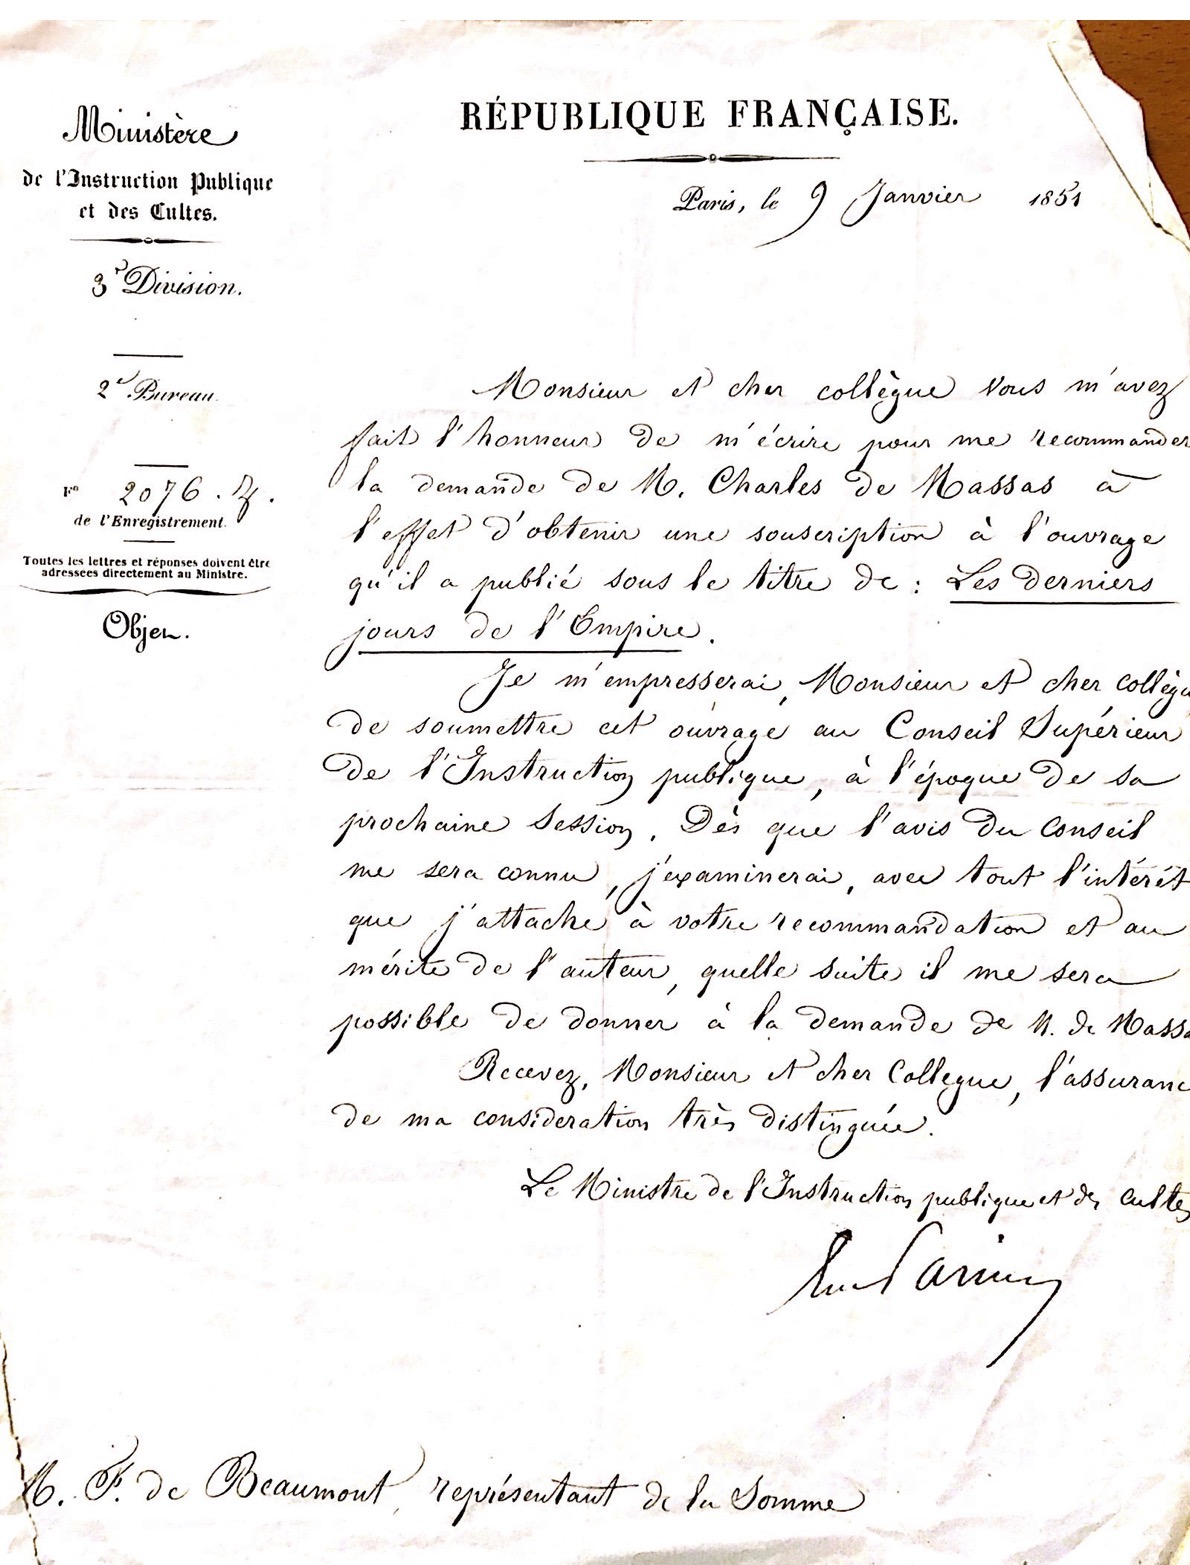 RÉPUBLIQUE FRANÇAISE.
Paris, le 9 Janvier 1851
Ministère
de l'Instruction Publique
et des Cultes.
3e Division.
2e Bureau.
No 2076.
de l'Enregistrement.
Toutes les lettres et réponses doivent être
adressées directement au Ministre.
Objet.
Monsieur et cher collègue Vous m'avez
fait l'honneur de m'écrire pour me recommander
la demande de M. Charles de Massas à
l'effet d'obtenir une souscription à l'ouvrage
qu'il a publié sous le titre de : Les derniers
jours de l'Empire.
Je m'empresserai, Monsieur et cher collègu
de soumettre cet ouvrage au Conseil Supérieur
de l'Instruction publique, à l'époque de sa
prochaine Session. Dès que l'avis du Conseil
me sera connu, j'examinerai, avec tout l'intérêt
que j'attache à votre recommandation et au
mérite de l'auteur, quelle suite il me sera
possible de donner à la demande de M. de Massa
Recevez, Monsieur et cher Collegue, l'assuranc
de ma consideration très distinguée.
Le Ministre de l'Instruction publique et des cultes
M. F. de Beaumont, représentant de la Somme